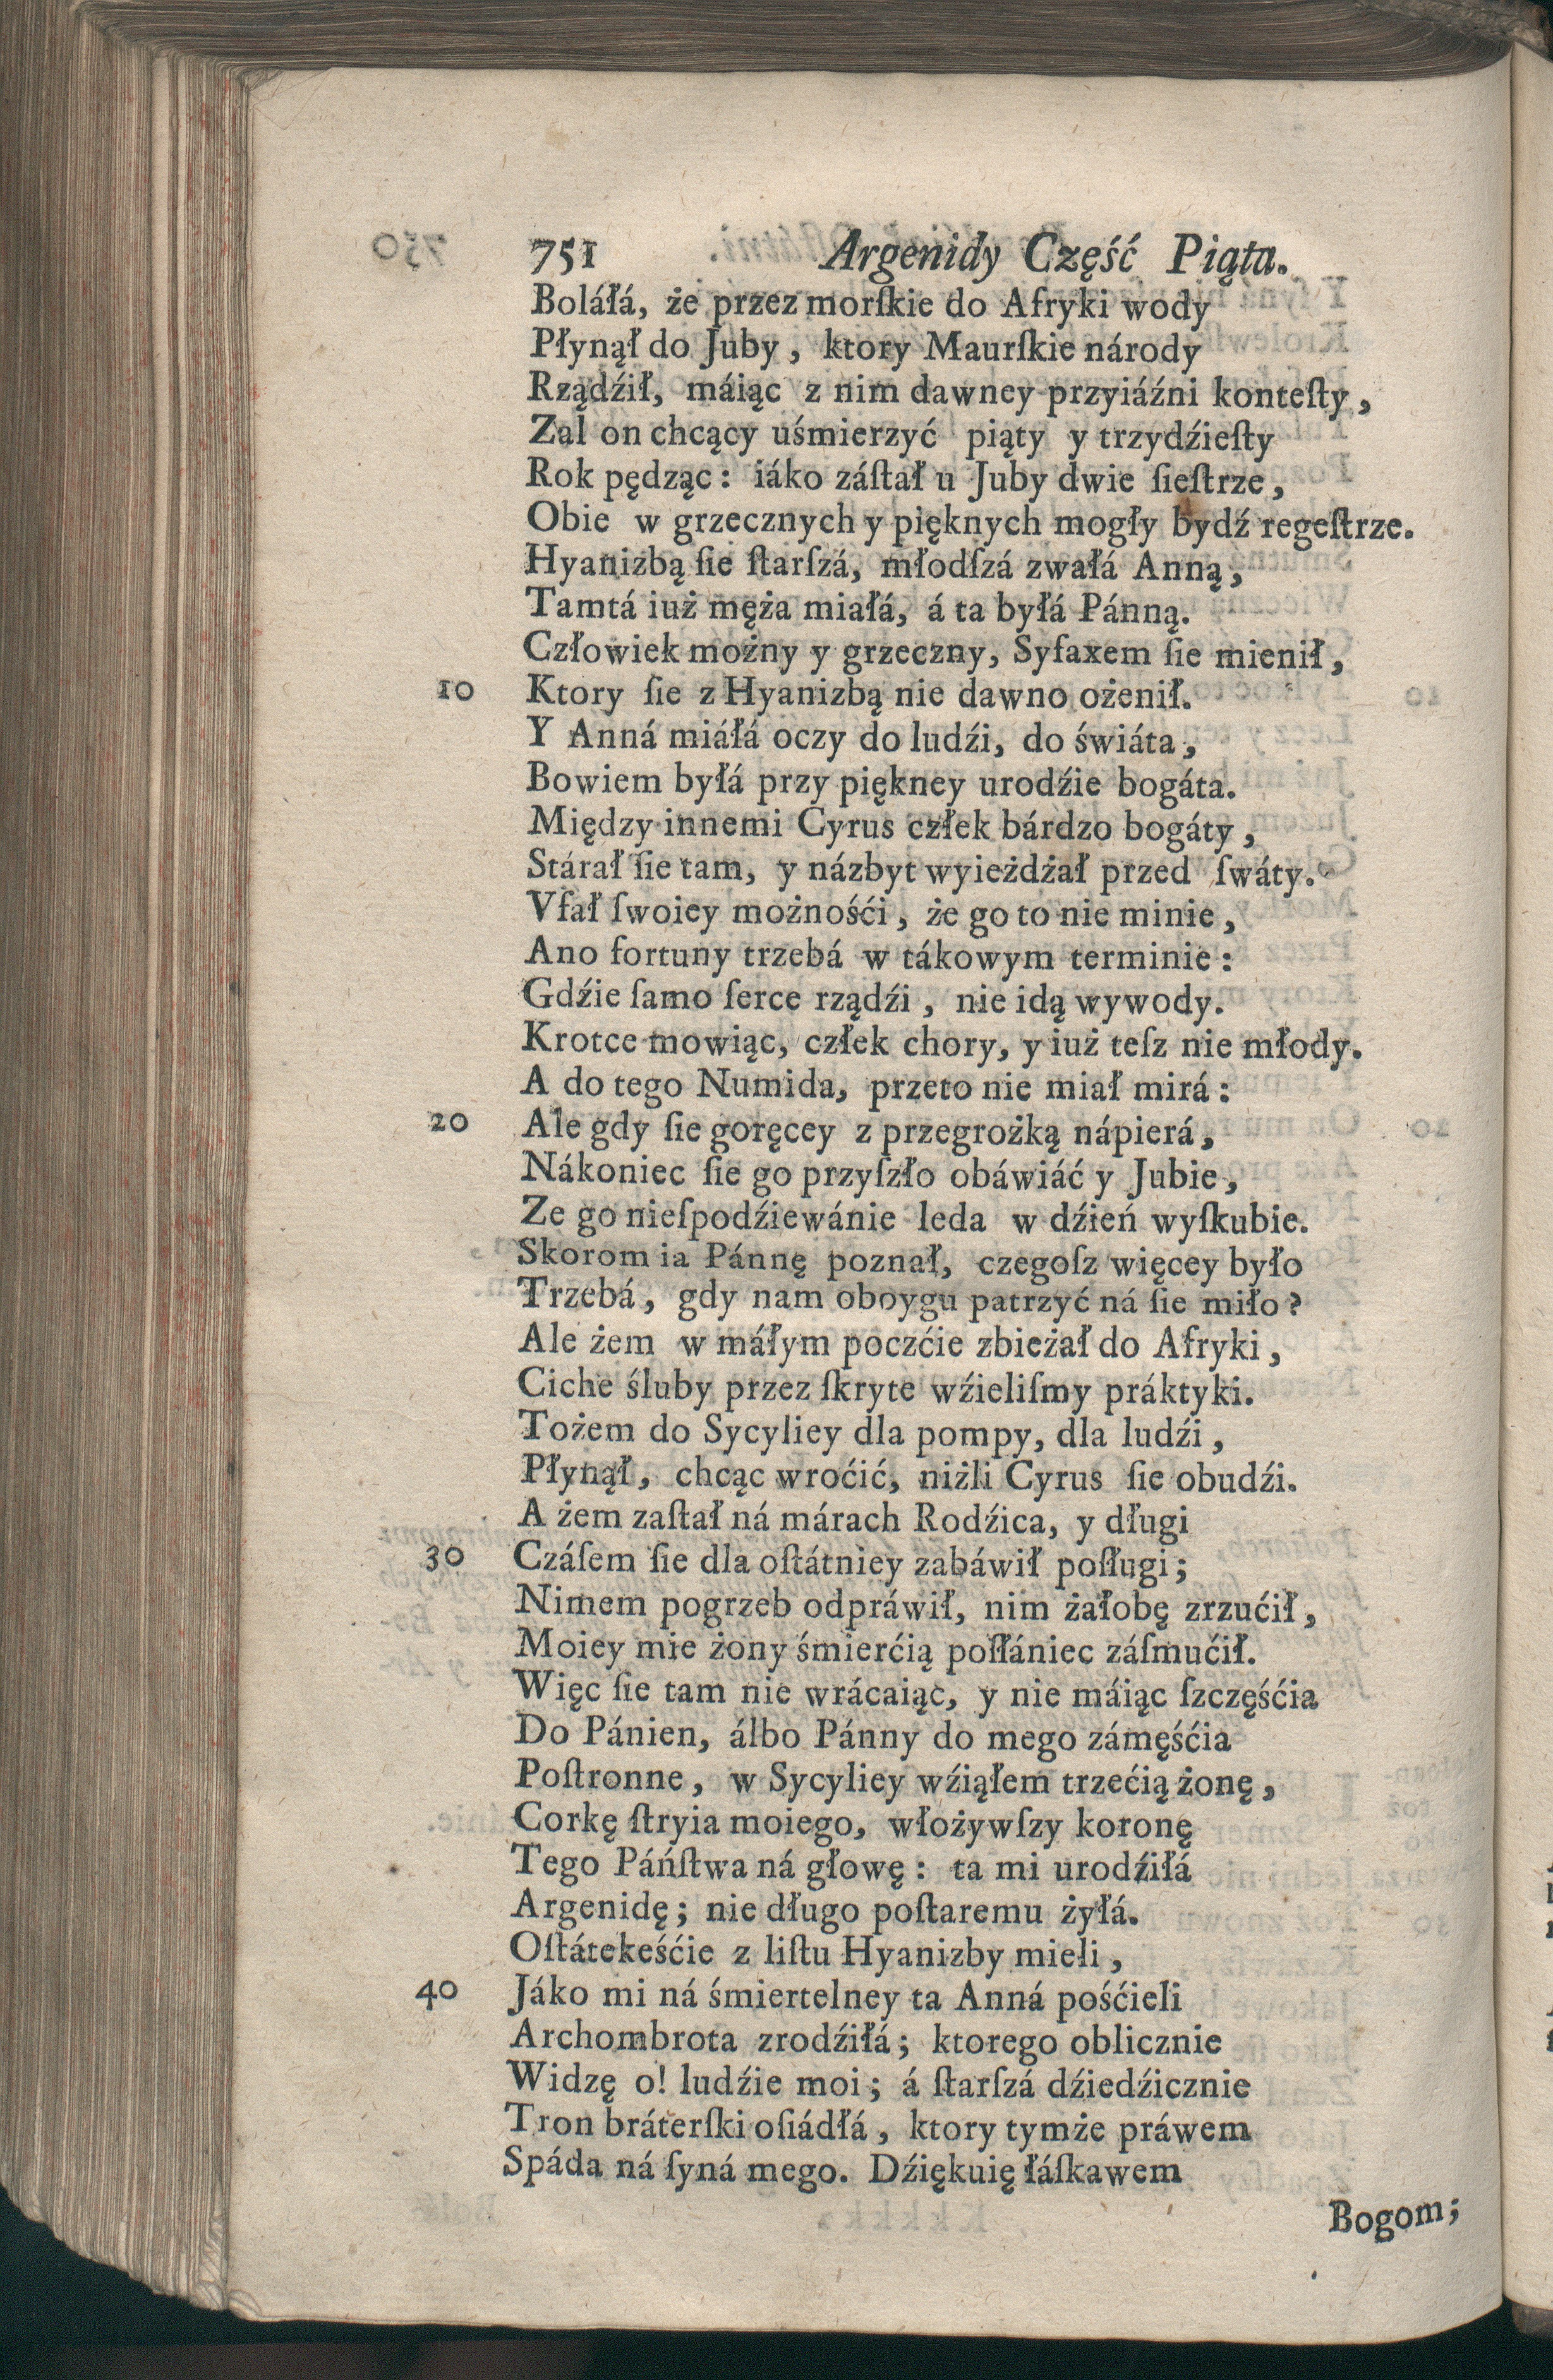 751 Argenidy Część Piąta.
Boláłá, że przez morſkie do Afryki wody
Płynął do Juby, ktory Maurſkie národy
Rządźił, máiąc z nim dawney przyiáźni konteſty,
Zal on chcący uśmierzyć piąty y trzydźieſty
Rok pędząc: iáko záſtał u Juby dwie ſieſtrze,
Obie w grzecznych y pięknych mogły bydź regeſtrze.
Hyanizbą ſie ſtarſzá, młodſzá zwałá Anną,
Tamtá iuż męża miałá, á ta byłá Pánną.
Człowiek możny y grzeczny, Syfaxem ſie mienił,
10 Ktory ſie z Hyanizbą nie dawno ożenił.
Y Anná miáłá oczy do ludźi, do świáta,
Bowiem byłá przy piękney urodźie bogáta.
Między innemi Cyrus człek bárdzo bogáty,
Stárał ſie tam, y názbyt wyieżdżał przed ſwáty.
Vfał ſwoiey możnośći, że go to nie minie,
Ano fortuny trzebá w tákowym terminie:
Gdźie ſamo ſerce rządźi, nie idą wywody.
Krotce mowiąc, człek chory, y iuż teſz nie młody.
A do tego Numida, przeto nie miał mirá:
20 Ale gdy ſie goręcey z przegrożką nápierá,
Nákoniec ſie go przyſzło obáwiáć y Jubie,
Ze go nieſpodźiewánie leda w dźień wyſkubie.
Skorom ia Pánnę poznał, czegoſz więcey było
Trzebá, gdy nam oboygu patrzyć ná ſie miło?
Ale żem w máłym poczćie zbieżał do Afryki,
Ciche śluby przez ſkryte wźieliſmy práktyki.
Tożem do Sycyliey dla pompy, dla ludźi,
Płynął, chcąc wroćić, niżli Cyrus ſie obudźi.
A żem zaſtał ná márach Rodźica, y długi
30 Czáſem ſie dla oſtátniey zabáwił poſługi;
Nimem pogrzeb odpráwił, nim żałobę zrzućił,
Moiey mie żony śmierćią poſłániec záſmućił.
Więc ſie tam nie wrácaiąc, y nie máiąc ſzczęśćia
Do Pánien, álbo Pánny do mego zámęśćia
Poſtronne, w Sycyliey wźiąłem trzećią żonę,
Corkę ſtryia moiego, włożywſzy koronę
Tego Páńſtwa ná głowę: ta mi urodźiłá
Argenidę; nie długo poſtaremu żyłá.
Oſtátekeśćie z liſtu Hyanizby mieli,
40 Jáko mi ná śmiertelney ta Anná pośćieli
Archombrota zrodźiłá; ktorego oblicznie
Widzę o! ludźie moi; á ſtarſzá dźiedźicznie
Tron bráterſki oſiádłá, ktory tymże práwem
Spáda ná ſyná mego. Dźiękuię łáſkawem
Bogom;